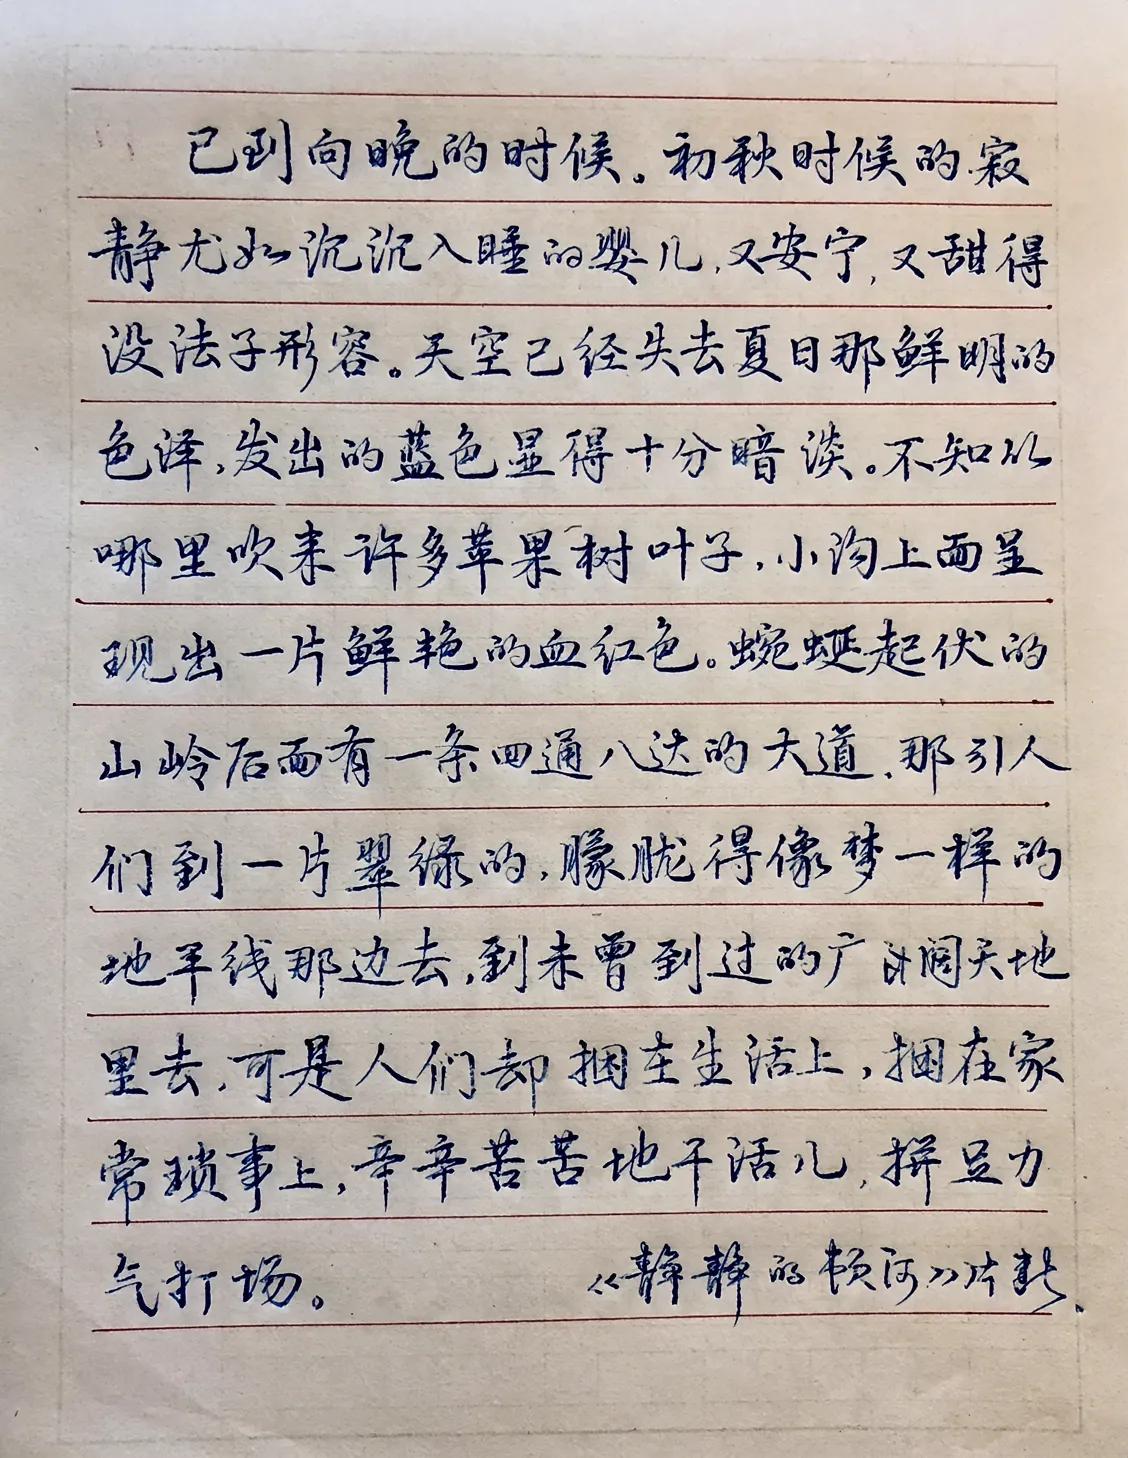 已到向晚的时候。初秋时候的寂
静尤如沉沉入睡的婴儿,又安宁,又甜得
没法子形容。天空已经失去夏日那鲜明的
色泽,发出的蓝色显得十分暗淡。不知从
哪里吹来许多苹果树叶子,小沟上面呈
现出一片鲜艳的血红色。蜿蜒起伏的
山岭后面有一条四通八达的大道,那引人
们到一片翠绿的,朦胧得像梦一样的
地平线那边去,到未曾到过的广阔天地
里去,可是人们却捆在生活上,捆在家
常琐事上,辛辛苦苦地干活儿,拼足力
气打场。 《静静的顿河》片断、